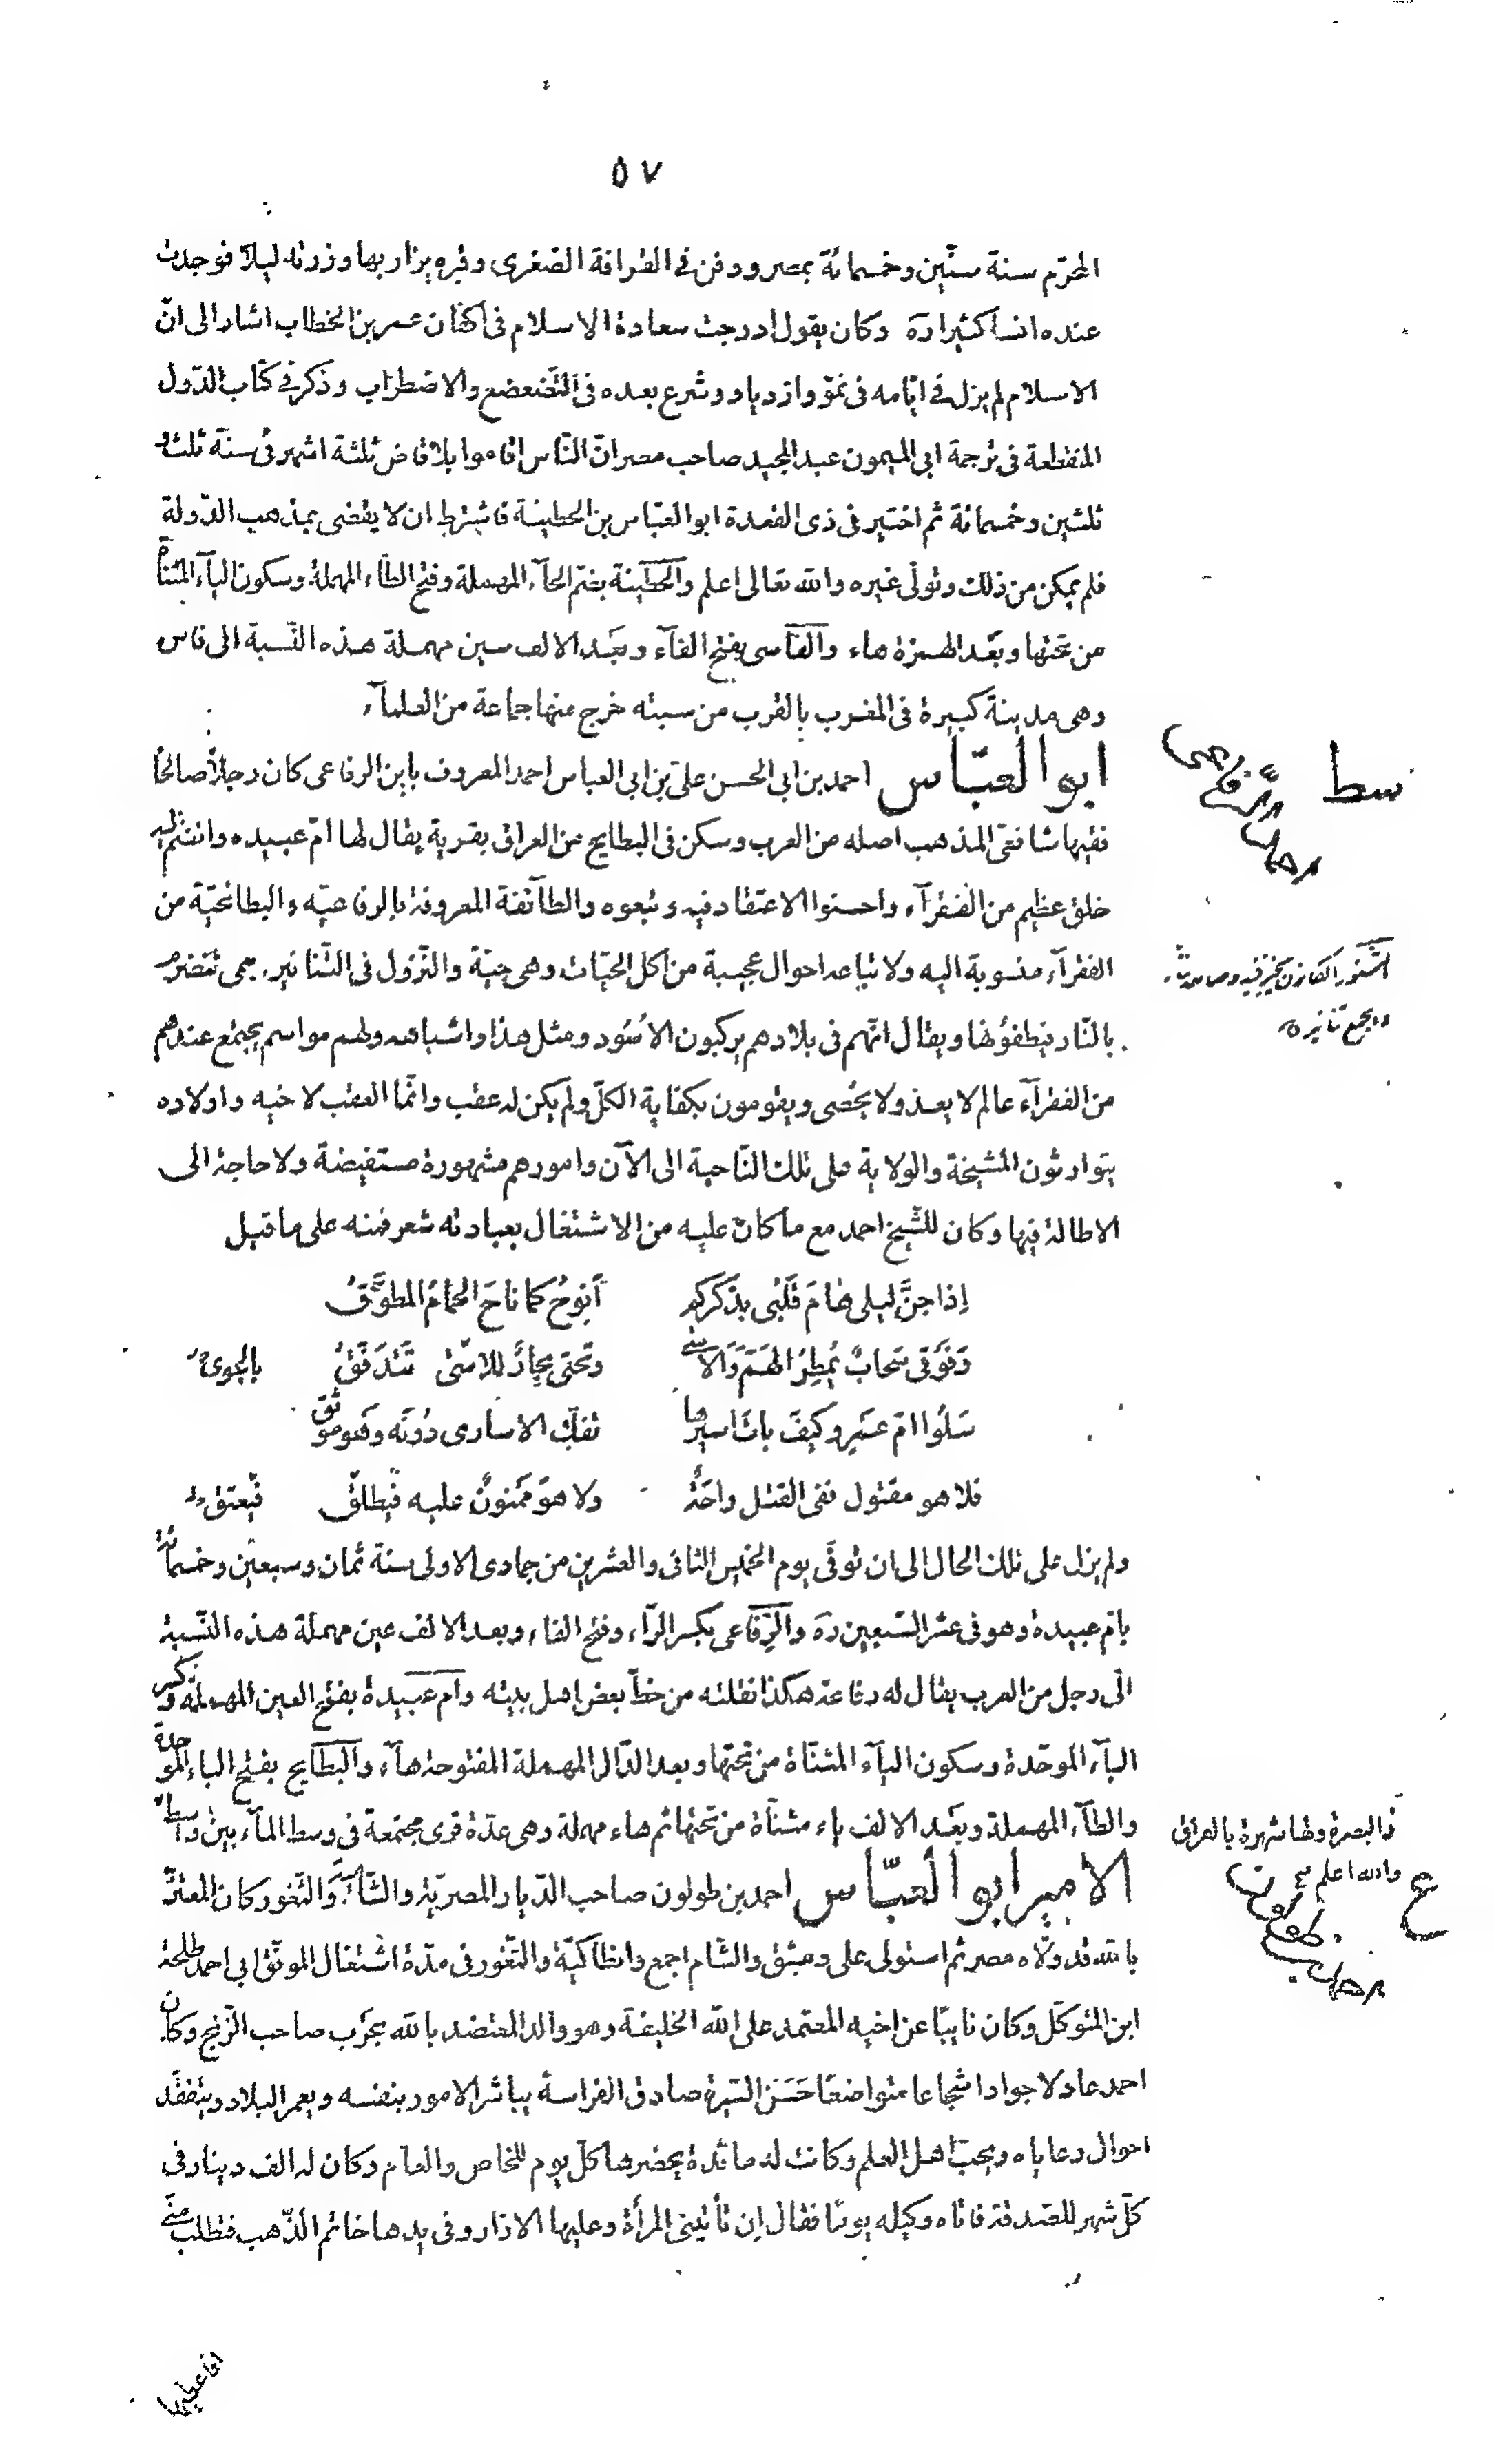 ٥٧
المحرّم سنة ستّين وخمسمائة بمصر ودفن فى القرافة الصّغرى وقبره يزار بها وزرته ليلا فوجدت
عنده انسا كثيرا رَهَ وكان يقول ادرجت سعادة الاسلام فى اكفان عمر بن الخطاب اشار الى انّ
الاسلام لم يزل فى ايّامه فى نموّ وازدياد وشرع بعده فى التّضعضع والاضطراب وذكر فى كتاب الدّول
المنقطعة فى ترجمة ابى الميمون عبد المجيد صاحب مصر انّ النّاس اقاموا بلا قاض ثلثة اشهر فى سنة ثلث و
ثلثين وخمسمائة ثم اختير فى ذى القعدة ابو العبّاس بن الحطيئة فاشترط ان لا يقضى بمذهب الدّولة
فلم يمكن من ذلك وتولّى غيره والله تعالى اعلم والحطيئة بضم الحآء المهملة وفتح الطّاء المهملة وسكون اليآء المثنّاة
من تحتها وبَعد الهمزة هاء والفآسى بفتح الفآء وبَعد الالف سين مهملة هذه النّسبة الى فاس
وهى مدينة كبيرة فى المغرب بالقرب من سبته خرج منها جماعة من العلمآء
ابو العبّاس احمد بن ابى الحسن علىّ بن ابى العباس احمد المعروف بابن الرفاعى كان رجلاً صالحًا
فقيها شافعىّ المذهب اصله من العرب وسكن فى البطايح من العراق بقرية يقال لها امّ عبيده وانضمّ اليه
خلق عظيم من الفقرآء واحسنوا الاعتقاد فيه وتبعوه والطآئفة المعروفة بالرفاعيّه والبطائحيّة من
الفقرآء منسوبة اليه ولاتباعه احوال عجيبة من اكل الحيّات وهى حيّة والنّزول فى التّنانير وهى تتضرم
بالنّار فيطفؤنها ويقال انّهم فى بلادهم يركبون الاُسُود ومثل هذا واشباهه ولهم مواسم يجتمع عندهم
من الفقرآء عالم لا يعدّ ولا يحُصى ويقومون بكفاية الكلّ ولم يكن له عقب وانّما العقب لاخيه واولاده
يتوارثون المشيخة والولاية على تلك النّاحية الى الآن وامورهم مشهورة مستفيضة ولا حاجة الى
الاطالة فيها وكان للشّيخ احمد مع ما كان عليه من الاشتغال بعبادته شعر فمنه على ما قيل
إذا جنَّ ليلى هٰامَ قَلبى بذكركم أنوحُ كما ناحَ الحمامُ المطوَّقُ
وَفَوقى سَحابٌ يُمطِرُ الهَمَّ وَالاَسى وتحتى بحارٌ للاسىٰ تَتَدَفّقُ بالجوىٰ
سَلُوا امّ عمروٍ كيفَ باتَ اسيرها تفكّ الاسارى دُونَه وَهُو موثق
فلا هو مقتول ففى القتل راحَةٌ ولا هوَ ممَنونٌ عليه فيطلق فيعتق
ولم يزل على تلك الحال الى ان توفّى يوم الخميس الثانى والعشرين من جمادى الاولى سنة ثمان وسبعين وخمسمائة
بامّ عبيدة وهو فى عشر السّبعين رَهَ والرّفاعى بكسر الرّآء وفتح الفاء وبعد الالف عين مهملة هذه النّسبة
الى رجل من العرب يقال له رفاعة هكذا نقلته من خطّ بعض اهل بيته وامّ عبيدة بفتح العين المهملة وكسر
البآء الموحّدة وسكون اليآء المثنّاة من تحتها وبعد الدّال المهملة المفتوحة هآء والبطآيح بفتح الباء الموحدة
والطآء المهملة وبَعد الالف ياء مثنّاة من تحتها ثم هاء مهملة وهى عدّة قرى مجتمعة فى وسط المآء بين واسط
الامير ابو العبّاس احمد بن طولون صاحب الدّيار المصريّة والشّاميّة والثّغور كان المعتزّ
بالله قد ولّاه مصر ثم استولى على دمشق والشّام اجمع وانطاكيّة والثّغور فى مدّة اشتغال الموفّق ابى احمد طلحة
ابن المتوكّل وكان نايبًا عن اخيه المعتمد على الله الخليفة وهو والد المعتضد بالله بحَرب صاحب الزّنج وكان
احمد عادلا جوادا شجاعا متواضعًا حَسَن السّيرة صادق الفراسة يباشر الامور بنفسه ويعمر البلاد ويتفقّد
احوال رعاياه ويحبّ اهل العلم وكانت له مائدة يحضرها كلّ يوم للخاص والعام وكان له الف دينار فى
كلّ شهر للصّدقة فاتاه وكيله يومًا فقال اِن تأتينى المرأة وعليها الازار وفى يدها خاتم الذّهب فتطلب منّى
سط
ابن الرّفاعى
التّنّور الكانون يخبز فيه
والجمع تنانير
والبصرة ولها شهرة بالعراق
والله اعلم
ع
طولون